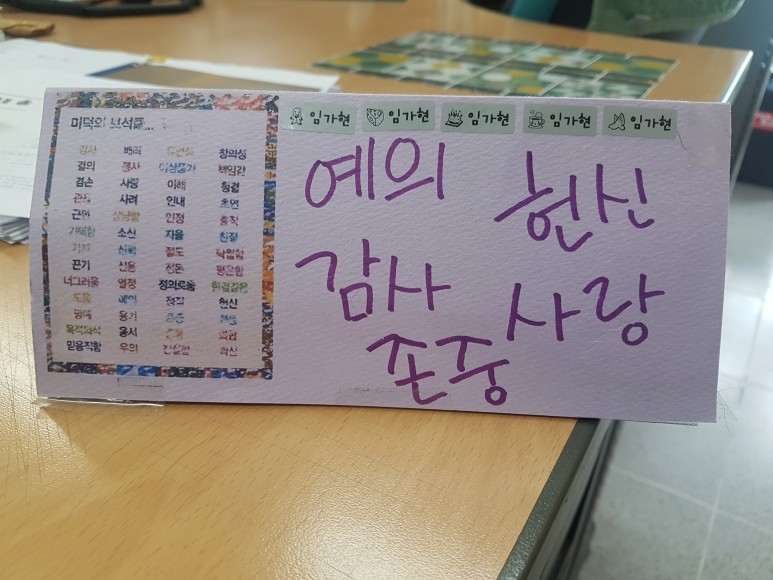 미덕의 보석들...
감사 배려 유연성 창의성
결의 봉사 이상품기 책임감
겸손 사랑 이해 청결
관용 사려 인내 초연
근면 상냥함 인정 충직
기뻐함 소신 자율 친절
기지 신뢰 절도 탁월함
끈기 신용 정돈 평온함
너그러움 열정 정의로움 한결같음
도움 예의 정직 헌신
명예 용기 존중 협동
목적의식 용서 화합
믿음직함 우의 진실함 확신
임가현 임가현 임가현 임가현 임가현
예의 헌신
감사 사랑
존중